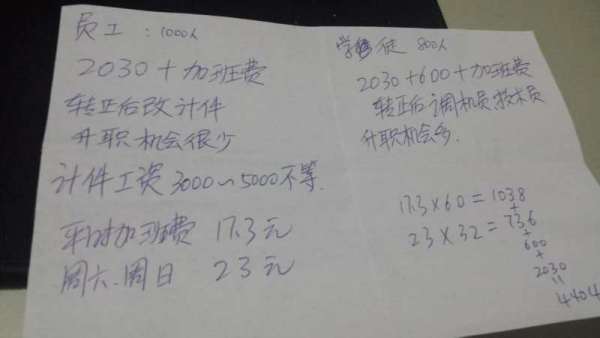 员工：1000人
2030+加班费
转正后改计件
升职机会很少
计件工资3000~5000不等.
平时加班费 17.3元
周六.周日 23元
学徒 800人
2030+600+加班费
转正后调机员.技术员
升职机会多.
17.3×60=1038
+
23×32=736
+
600
+
2030
=
4404